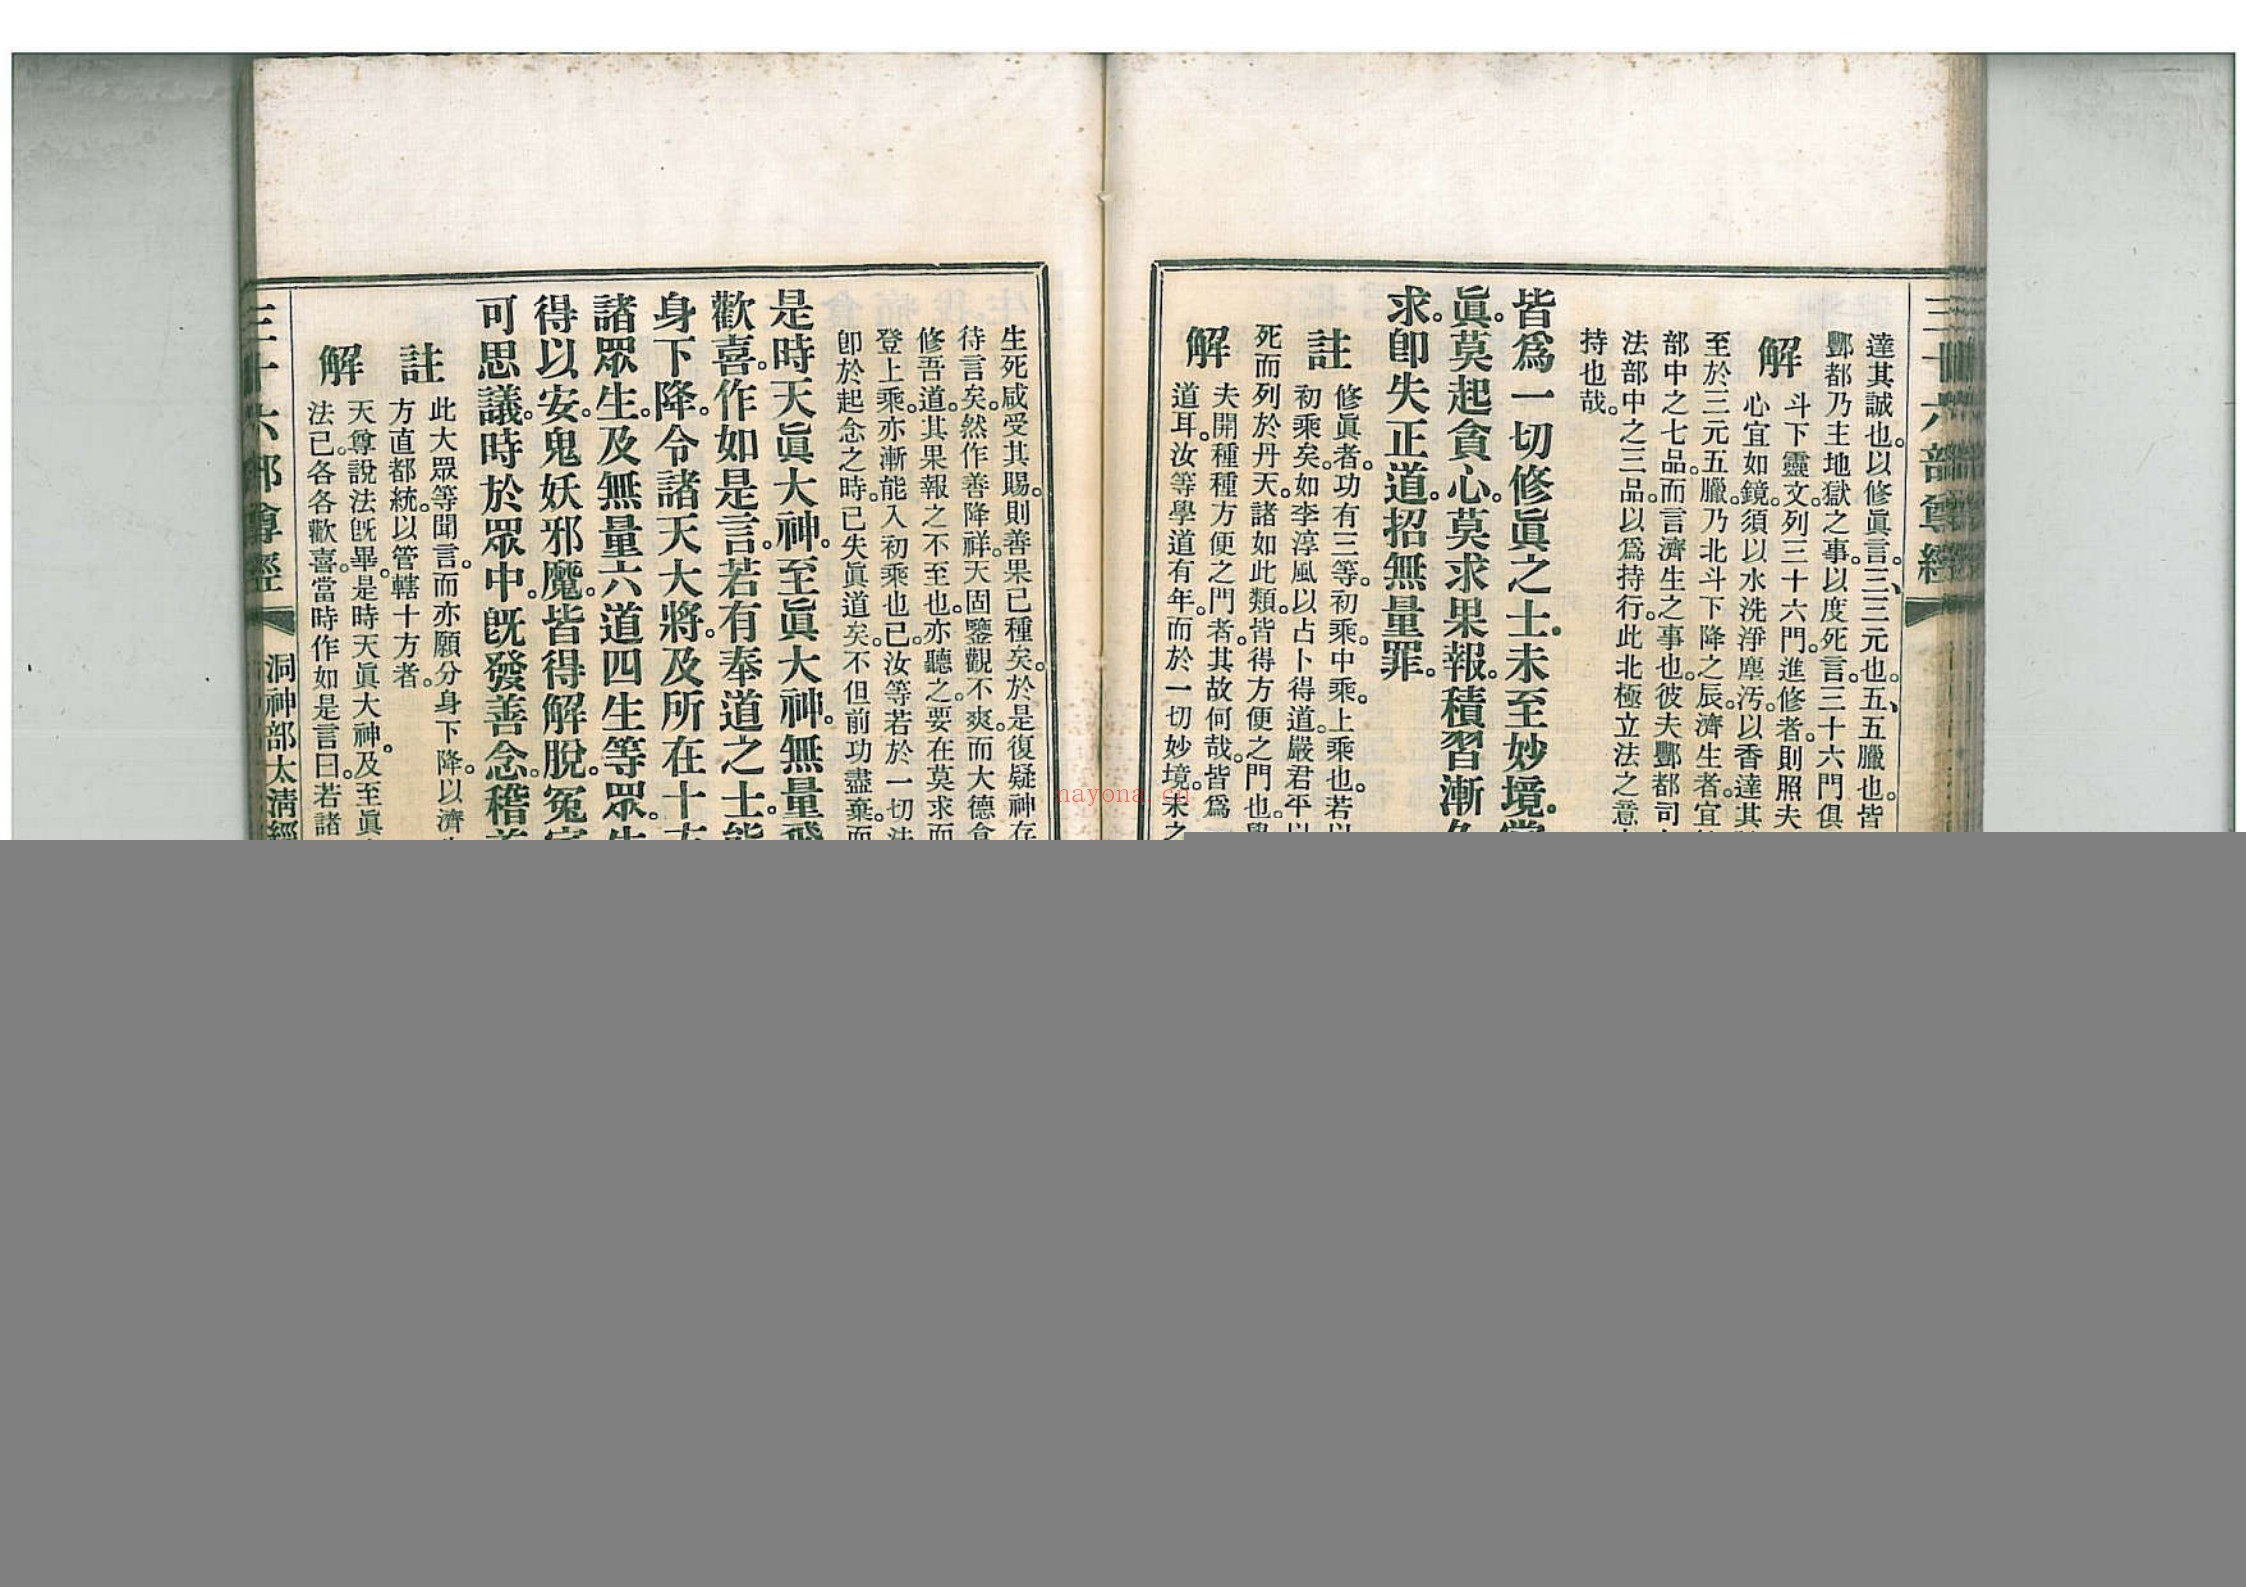 三十六部尊經
達其誠也。以修眞言。三、三元也。五、五臘也。皆
酆都乃主地獄之事。以度死言。三十六門俱
解
斗下靈文。列三十六門。進修者。則照夫
心宜如鏡。須以水洗淨塵汚。以香達其
至於三元五臘。乃北斗下降之辰。濟生者。宜
部中之七品。而言濟生之事也。彼夫酆都司
法部中之三品。以爲持行。此北極立法之意
持也哉。
皆爲一切修眞之士。未至妙境。當
眞。莫起貪心。莫求果報。積習漸久
求。卽失正道。招無量罪。
註
修眞者。功有三等。初乘。中乘。上乘也。若以
初乘矣。如李淳風以占卜得道。嚴君平以
死而列於丹天。諸如此類。皆得方便之門也。
解
夫開種種方便之門者。其故何哉。皆爲一
道耳。汝等學道有年。而於一切妙境。未之
生死咸受其賜。則善果已種矣。於是復疑神存
待言矣。然作善降祥。天固鑒觀不爽。而大德
修吾道。其果報之不至也。亦聽之。要在莫求而
登上乘。亦漸能入初乘也已。汝等若於一切法
卽於起念之時。已失眞道矣。不但前功盡棄。而
是時天眞大神。至眞大神。無量飛
歡喜。作如是言。若有奉道之士。能
身下降。令諸天大將。及所在十方
諸眾生。及無量六道四生等眾。生
得以安。鬼妖邪魔。皆得解脫。冤家
可思議。時於眾中。旣發善念。稽首
註
此大眾等聞言。而亦願分身下降。以濟
方直都統。以管轄十方者。
解
天尊說法旣畢。是時天眞大神。及至眞
法已。各各歡喜。當時作如是言曰。若諸
三十六部尊經
洞神部太淸經
nayona.cn